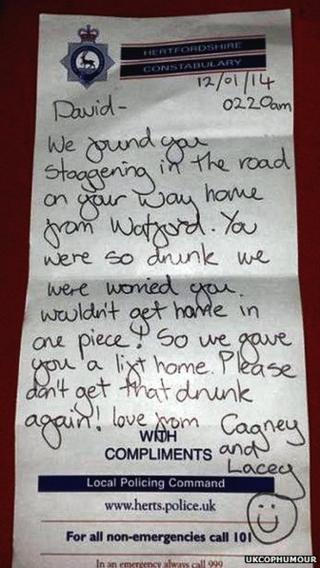 HERTFORDSHIRE
CONSTABULARY
12/01/14
0220am
David-
We found you
staggering in the road
on your way home
from Watford. You
were so drunk we
were worried you
wouldn't get home in
one piece! So we gave
you a lift home. Please
don't get that drunk
again! love from Cagney
and
Lacey
WITH
COMPLIMENTS
Local Policing Command
www.herts.police.uk
For all non-emergencies call 101
In an emergency always call 999
UKCOPHUMOUR